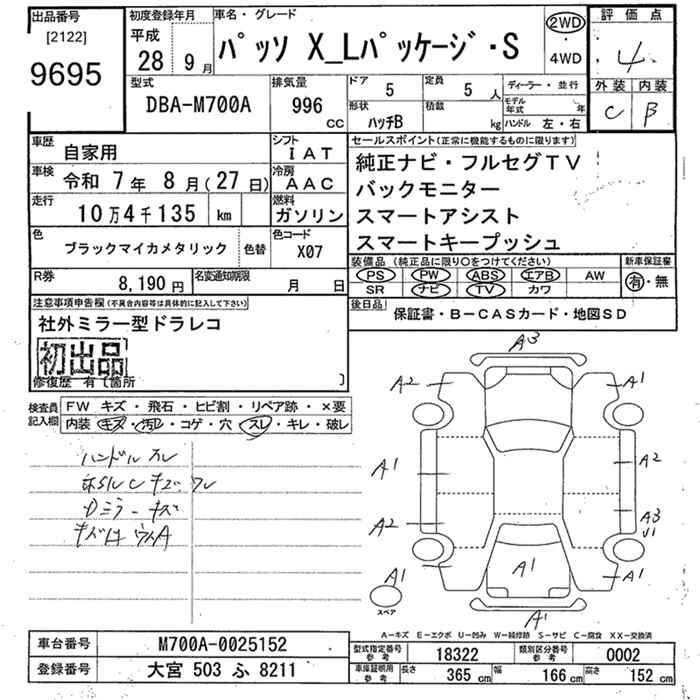 出品番号
[2122]
9695
初度登録年月
平成
28 9月
車名・グレード
パッソ X_Lパッケージ・S
2WD
4WD
評価点
4
外装 内装
C B
型式
DBA-M700A
排気量
996
CC
ドア
5
定員
5人
形状
ハッチB
積載
kg
ディーラー・並行
モデル年式 年
ハンドル 左・右
車歴
自家用
シフト
IAT
車検
令和 7年 8月(27日)
冷房
AAC
走行
10万4千135 km
燃料
ガソリン
色
ブラックマイカメタリック
色替
色コード
X07
R券
8,190円
名変通知期限
月 日
セールスポイント(正常に機能するものに限ります)
純正ナビ・フルセグTV
バックモニター
スマートアシスト
スマートキープッシュ
装備品(純正品に限り○をつけてください)
PS PW ABS エアB AW
SR ナビ TV カワ
新車保証書
有・無
後日品
保証書・B-CASカード・地図SD
注意事項申告欄(不具合内容等は具体的に記入して下さい)
社外ミラー型ドラレコ
初出品
修復歴 有〔箇所 〕
検査員記入欄
FW キズ・飛石・ヒビ割・リペア跡・×要
内装 キズ・汚レ・コゲ・穴・スレ・キレ・破レ
ハンドル スレ
キズ
Dミラーキズ
A3
A2
A1
A1
A2
A2
A3
A1
A1
A1
A1
スペア
A1
A-キズ E-エクボ U-凹み W-補修跡 S-サビ C-腐食 XX-交換済
車台番号
M700A-0025152
登録番号
大宮 503 ふ 8211
型式指定番号
参考
18322
類別区分番号
参考
0002
車庫証明用
参考
長さ 365 cm
幅 166 cm
高さ 152 cm